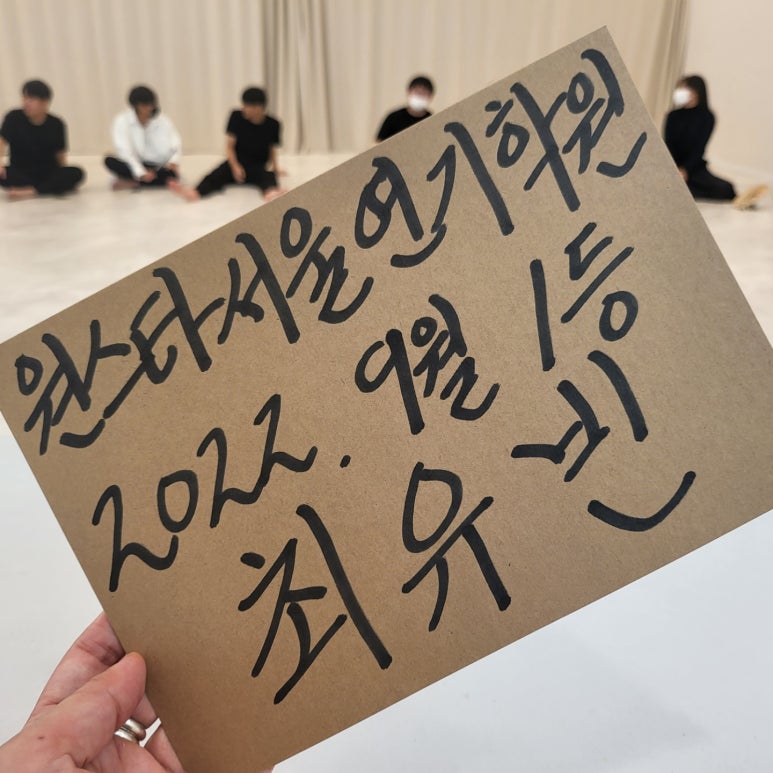 원스타서울연기하원
2022. 9월 1등
최 유